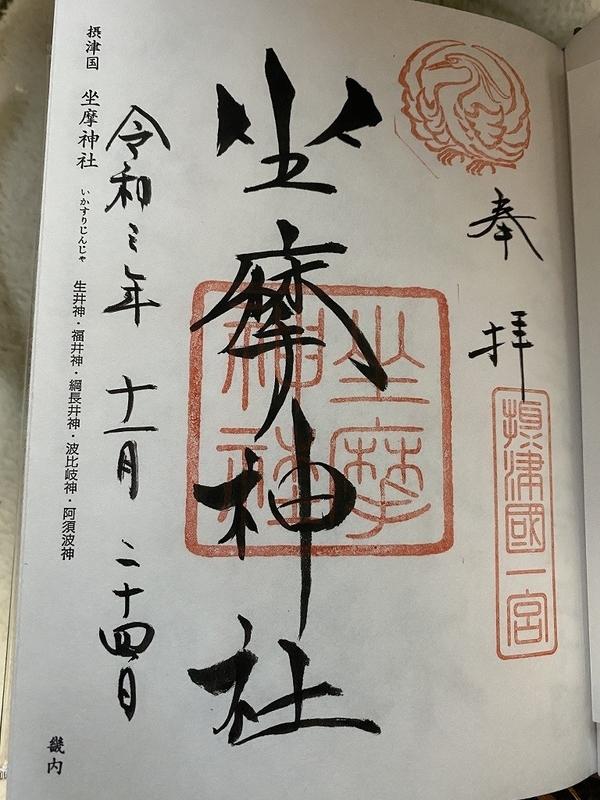 奉拝
摂津國一宮
坐摩神社
坐摩神社
令和三年十一月二十四日
摂津国 坐摩神社 いかすりじんじゃ 生井神・福井神・綱長井神・波比岐神・阿須波神
畿内